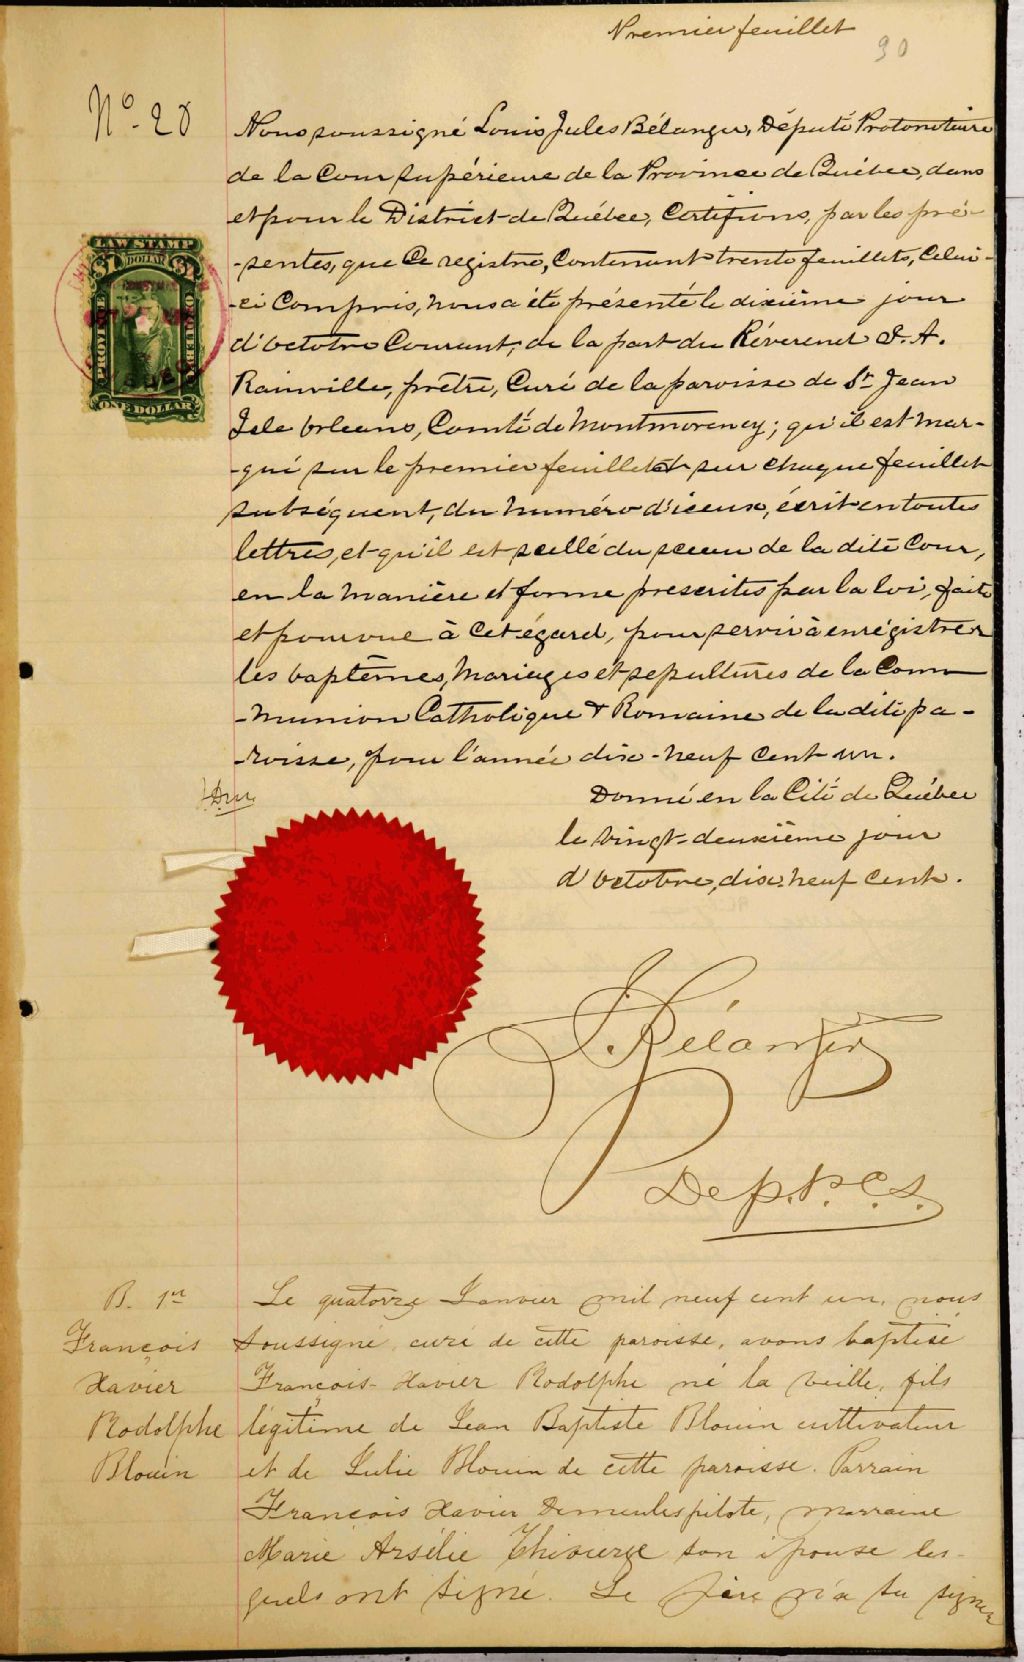 Premier feuillet
90
No. 20
Nous soussigné Louis Jules Bélanger, Député Protonotaire
de la Cour Supérieure de la Province de Québec, dans
et pour le District de Québec, Certifions, par les pré-
-sentes, que Ce registre, Contenant trente feuillets, Celui-
-ci Compris, nous a été présenté le dixième jour
d'octobre Courant, de la part du Révérend A.
Rainville, prêtre, Curé de la paroisse de St Jean
Isle Orleans, Comté de Montmorency; qu'il est mar-
-qué sur le premier feuillet et sur chaque feuillet
subséquent, du numéro d'iceux, écrit en toutes
lettres, et qu'il est scellé du sceau de la dite Cour,
en la manière et forme prescrites par la loi, faite
et pourvue à cet égard, pour servir à enrégistrer
les baptêmes, Mariages et sepultures de la Com-
-munion Catholique & Romaine de la dite pa-
-roisse, pour l'année dix-neuf cent un.
Donné en la Cité de Québec
le vingt-deuxième jour
d'octobre, dix-neuf cent.
LAW STAMP
DOLLAR
ONE DOLLAR
J. Bélanger
Dep. P. C. S.
B. 1er
François
Xavier
Rodolphe
Blouin
Le quatorze Janvier mil neuf cent un, nous
soussigné curé de cette paroisse, avons baptisé
François-Xavier Rodolphe né la veille, fils
légitime de Jean Baptiste Blouin cultivateur
et de Julie Blouin de cette paroisse. Parrain
François Xavier Demeules pilote, marraine
Marie Arsélie Thivierge son épouse les-
quels ont signé. Le père n'a su signer